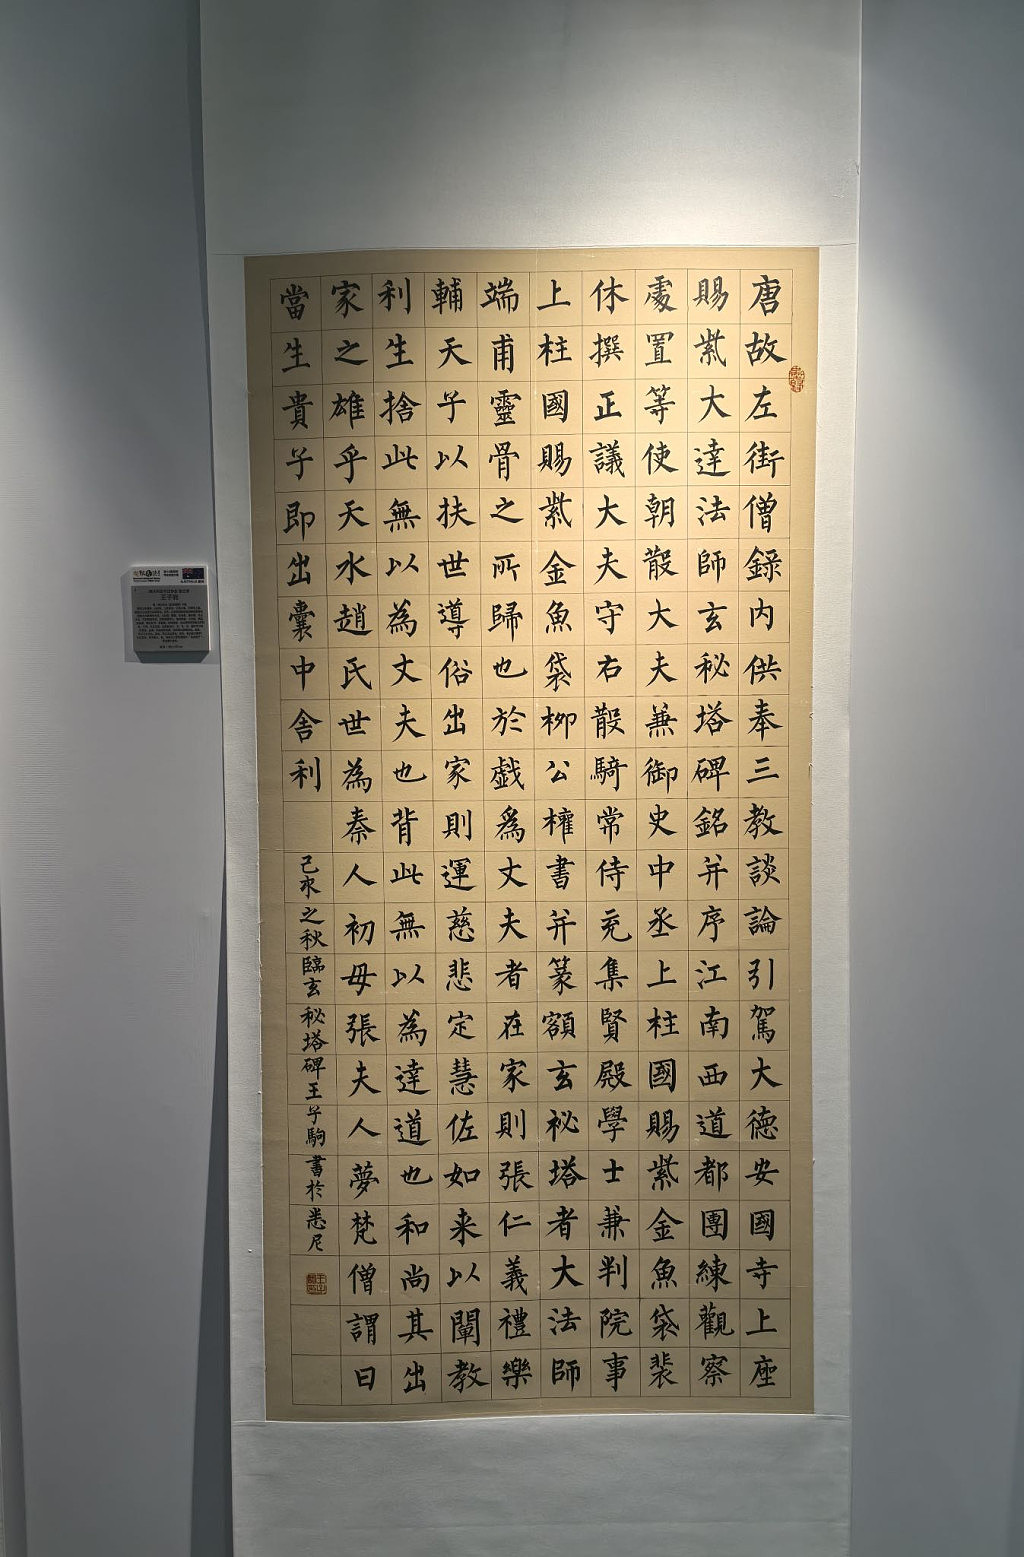 唐故左街僧錄內供奉三教談論引駕大德安國寺上座
賜紫大達法師玄秘塔碑銘并序江南西道都團練觀察
處置等使朝散大夫兼御史中丞上柱國賜紫金魚袋裴
休撰正議大夫守右散騎常侍充集賢殿學士兼判院事
上柱國賜紫金魚袋柳公權書并篆額玄祕塔者大法師
端甫靈骨之所歸也於戲為丈夫者在家則張仁義禮樂
輔天子以扶世導俗出家則運慈悲定慧佐如来以闡教
利生捨此無以為丈夫也背此無以為達道也和尚其出
家之雄乎天水趙氏世為秦人初母張夫人夢梵僧謂曰
當生貴子即出囊中舍利
之秋臨玄秘塔碑王子駒書於悉尼